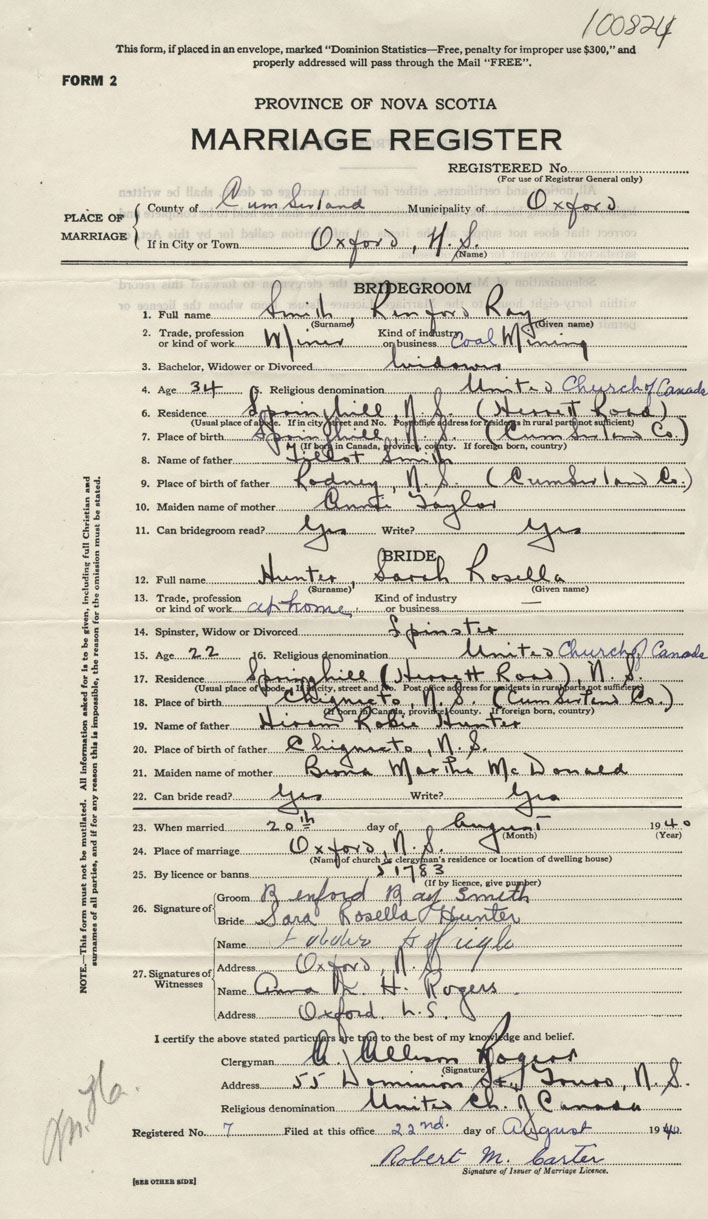 100824
This form, if placed in an envelope, marked "Dominion Statistics—Free, penalty for improper use $300," and
properly addressed will pass through the Mail "FREE".
FORM 2
PROVINCE OF NOVA SCOTIA
MARRIAGE REGISTER
REGISTERED No.
(For use of Registrar General only)
PLACE OF MARRIAGE
County of Cumberland Municipality of Oxford
If in City or Town Oxford, N.S.
(Name)
BRIDEGROOM
1. Full name Smith, Renford Ray
(Surname) (Given name)
2. Trade, profession or kind of work Miner Kind of industry or business Coal Mining
3. Bachelor, Widower or Divorced Widower
4. Age 34 5. Religious denomination United Church of Canada
6. Residence Springhill, N.S. (Herrett Road)
(Usual place of abode. If in city, street and No. Post office address for residents in rural parts not sufficient)
7. Place of birth Springhill, N.S. (Cumberland Co.)
(If born in Canada, province, county. If foreign born, country)
8. Name of father Smith
9. Place of birth of father Rodney, N.S. (Cumberland Co.)
10. Maiden name of mother Annie Taylor
11. Can bridegroom read? Yes Write? Yes
BRIDE
12. Full name Hunter, Sarah Rosella
(Surname) (Given name)
13. Trade, profession or kind of work at home Kind of industry or business —
14. Spinster, Widow or Divorced Spinster
15. Age 22 16. Religious denomination United Church of Canada
17. Residence Springhill (Herrett Road), N.S.
(Usual place of abode. If in city, street and No. Post office address for residents in rural parts not sufficient)
18. Place of birth Chignecto, N.S. (Cumberland Co.)
(If born in Canada, province, county. If foreign born, country)
19. Name of father Hiram Robie Hunter
20. Place of birth of father Chignecto, N.S.
21. Maiden name of mother Martha McDonald
22. Can bride read? Yes Write? Yes
23. When married 20th day of August 1940
(Month) (Year)
24. Place of marriage Oxford, N.S.
(Name of church or clergyman's residence or location of dwelling house)
25. By licence or banns 51783
(If by licence, give number)
26. Signature of
Groom Renford Ray Smith
Bride Sara Rosella Hunter
27. Signatures of Witnesses
Name
Address Oxford, N.S.
Name Anna K. H. Rogers
Address Oxford, N.S.
I certify the above stated particulars are true to the best of my knowledge and belief.
Clergyman A. Allison Rogers
(Signature)
Address 55 Dominion St., Truro, N.S.
Religious denomination United Ch. of Canada
Registered No. 7 Filed at this office 22nd. day of August 1940.
Robert M. Carter
Signature of Issuer of Marriage Licence.
[SEE OTHER SIDE]
NOTE.—This form must not be mutilated. All information asked for is to be given, including full Christian and
surnames of all parties, and if for any reason this is impossible, the reason for the omission must be stated.